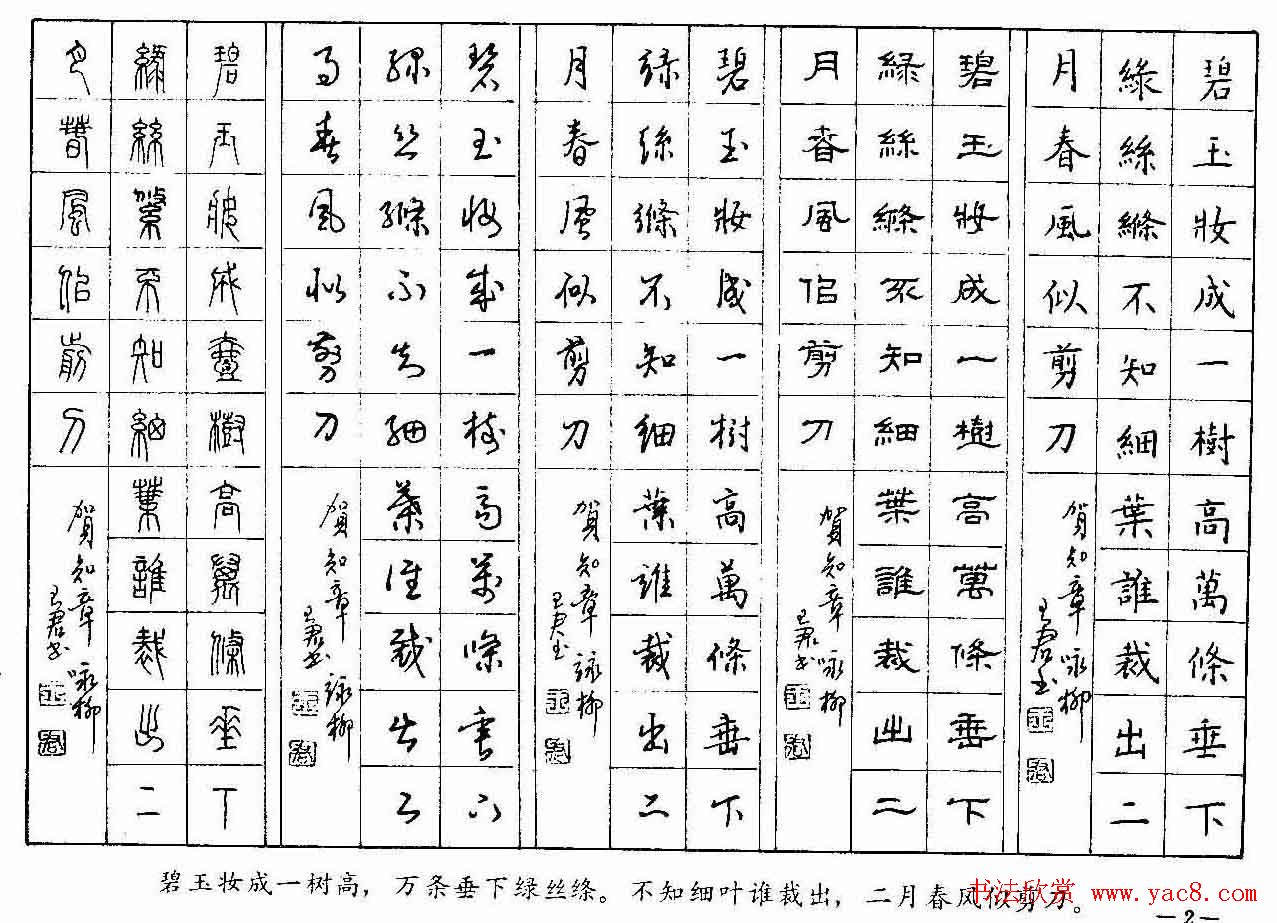 碧玉妝成一樹高萬條垂下
綠絲縧不知細葉誰裁出二
月春風似剪刀
賀知章咏柳
碧玉妝成一樹高萬條垂下
緑絲縧不知細葉誰裁出二
月春風似剪刀
賀知章咏柳
碧玉妝成一樹高萬條垂下
綠絲縧不知細葉誰裁出二
月春風似剪刀
賀知章詠柳
碧玉妝成一樹高萬條垂下
綠絲縧不知細葉誰裁出二
月春風似剪刀
賀知章詠柳
碧玉妝成壹樹高萬條垂下
綠絲縧不知細葉誰裁出二
月春風似剪刀
賀知章咏柳
碧玉妆成一树高，万条垂下绿丝绦。不知细叶谁裁出，二月春风似剪刀。
书法欣赏 www.yac8.com
—2—